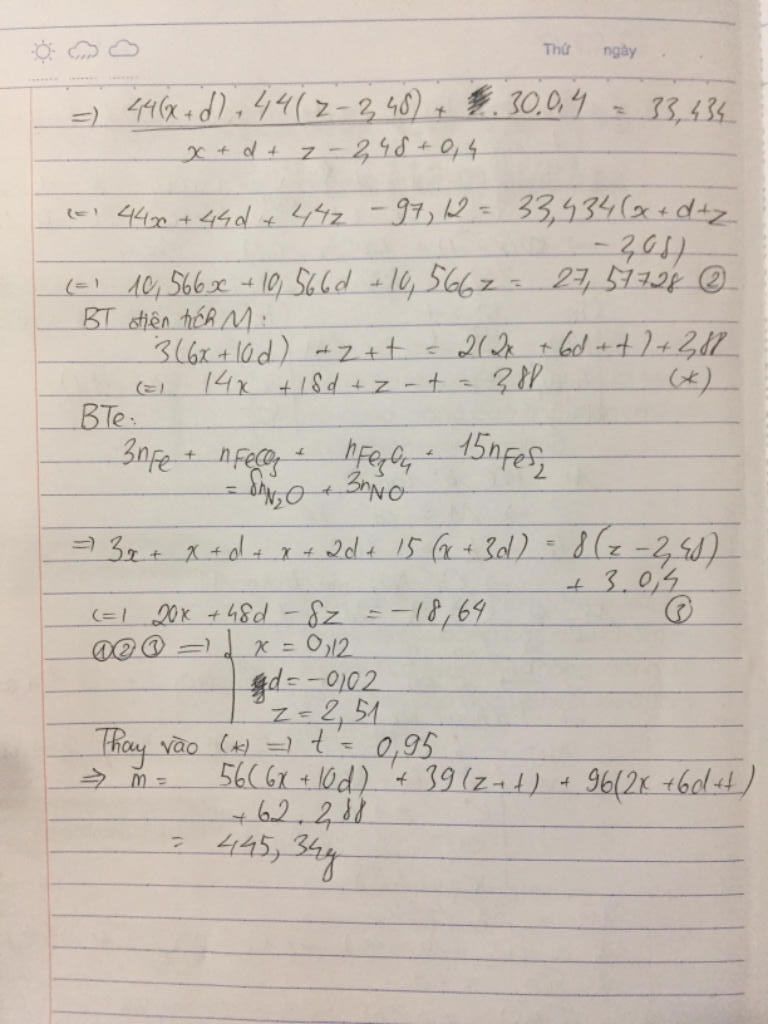 Thứ ngày
=) 44(x+d) + 44(z-2,48) + .30.0,4 = 33,434
x + d + z - 2,48 + 0,4
(=) 44x + 44d + 44z - 97,12 = 33,434(x+d+z
- 2,08)
(=) 10,566x + 10,566d + 10,566z = 27,57728 ②
BT điện tích M:
3(6x+10d) + z + t = 2(2x + 6d + t) + 2,88
(=) 14x + 18d + z - t = 2,88 (*)
BTe:
3nFe + nFeCO3 + nFe3O4 + 15nFeS2
= 8nN2O + 3nNO
=) 3x + x + d + x + 2d + 15(x + 3d) = 8(z - 2,48)
+ 3.0,4
(=) 20x + 48d - 8z = -18,64 ③
①②③ =) x = 0,12
d = -0,02
z = 2,51
Thay vào (*) =) t = 0,95
⇒ m = 56(6x + 10d) + 39(z + t) + 96(2x + 6d + t)
+ 62.2,88
= 445,34g